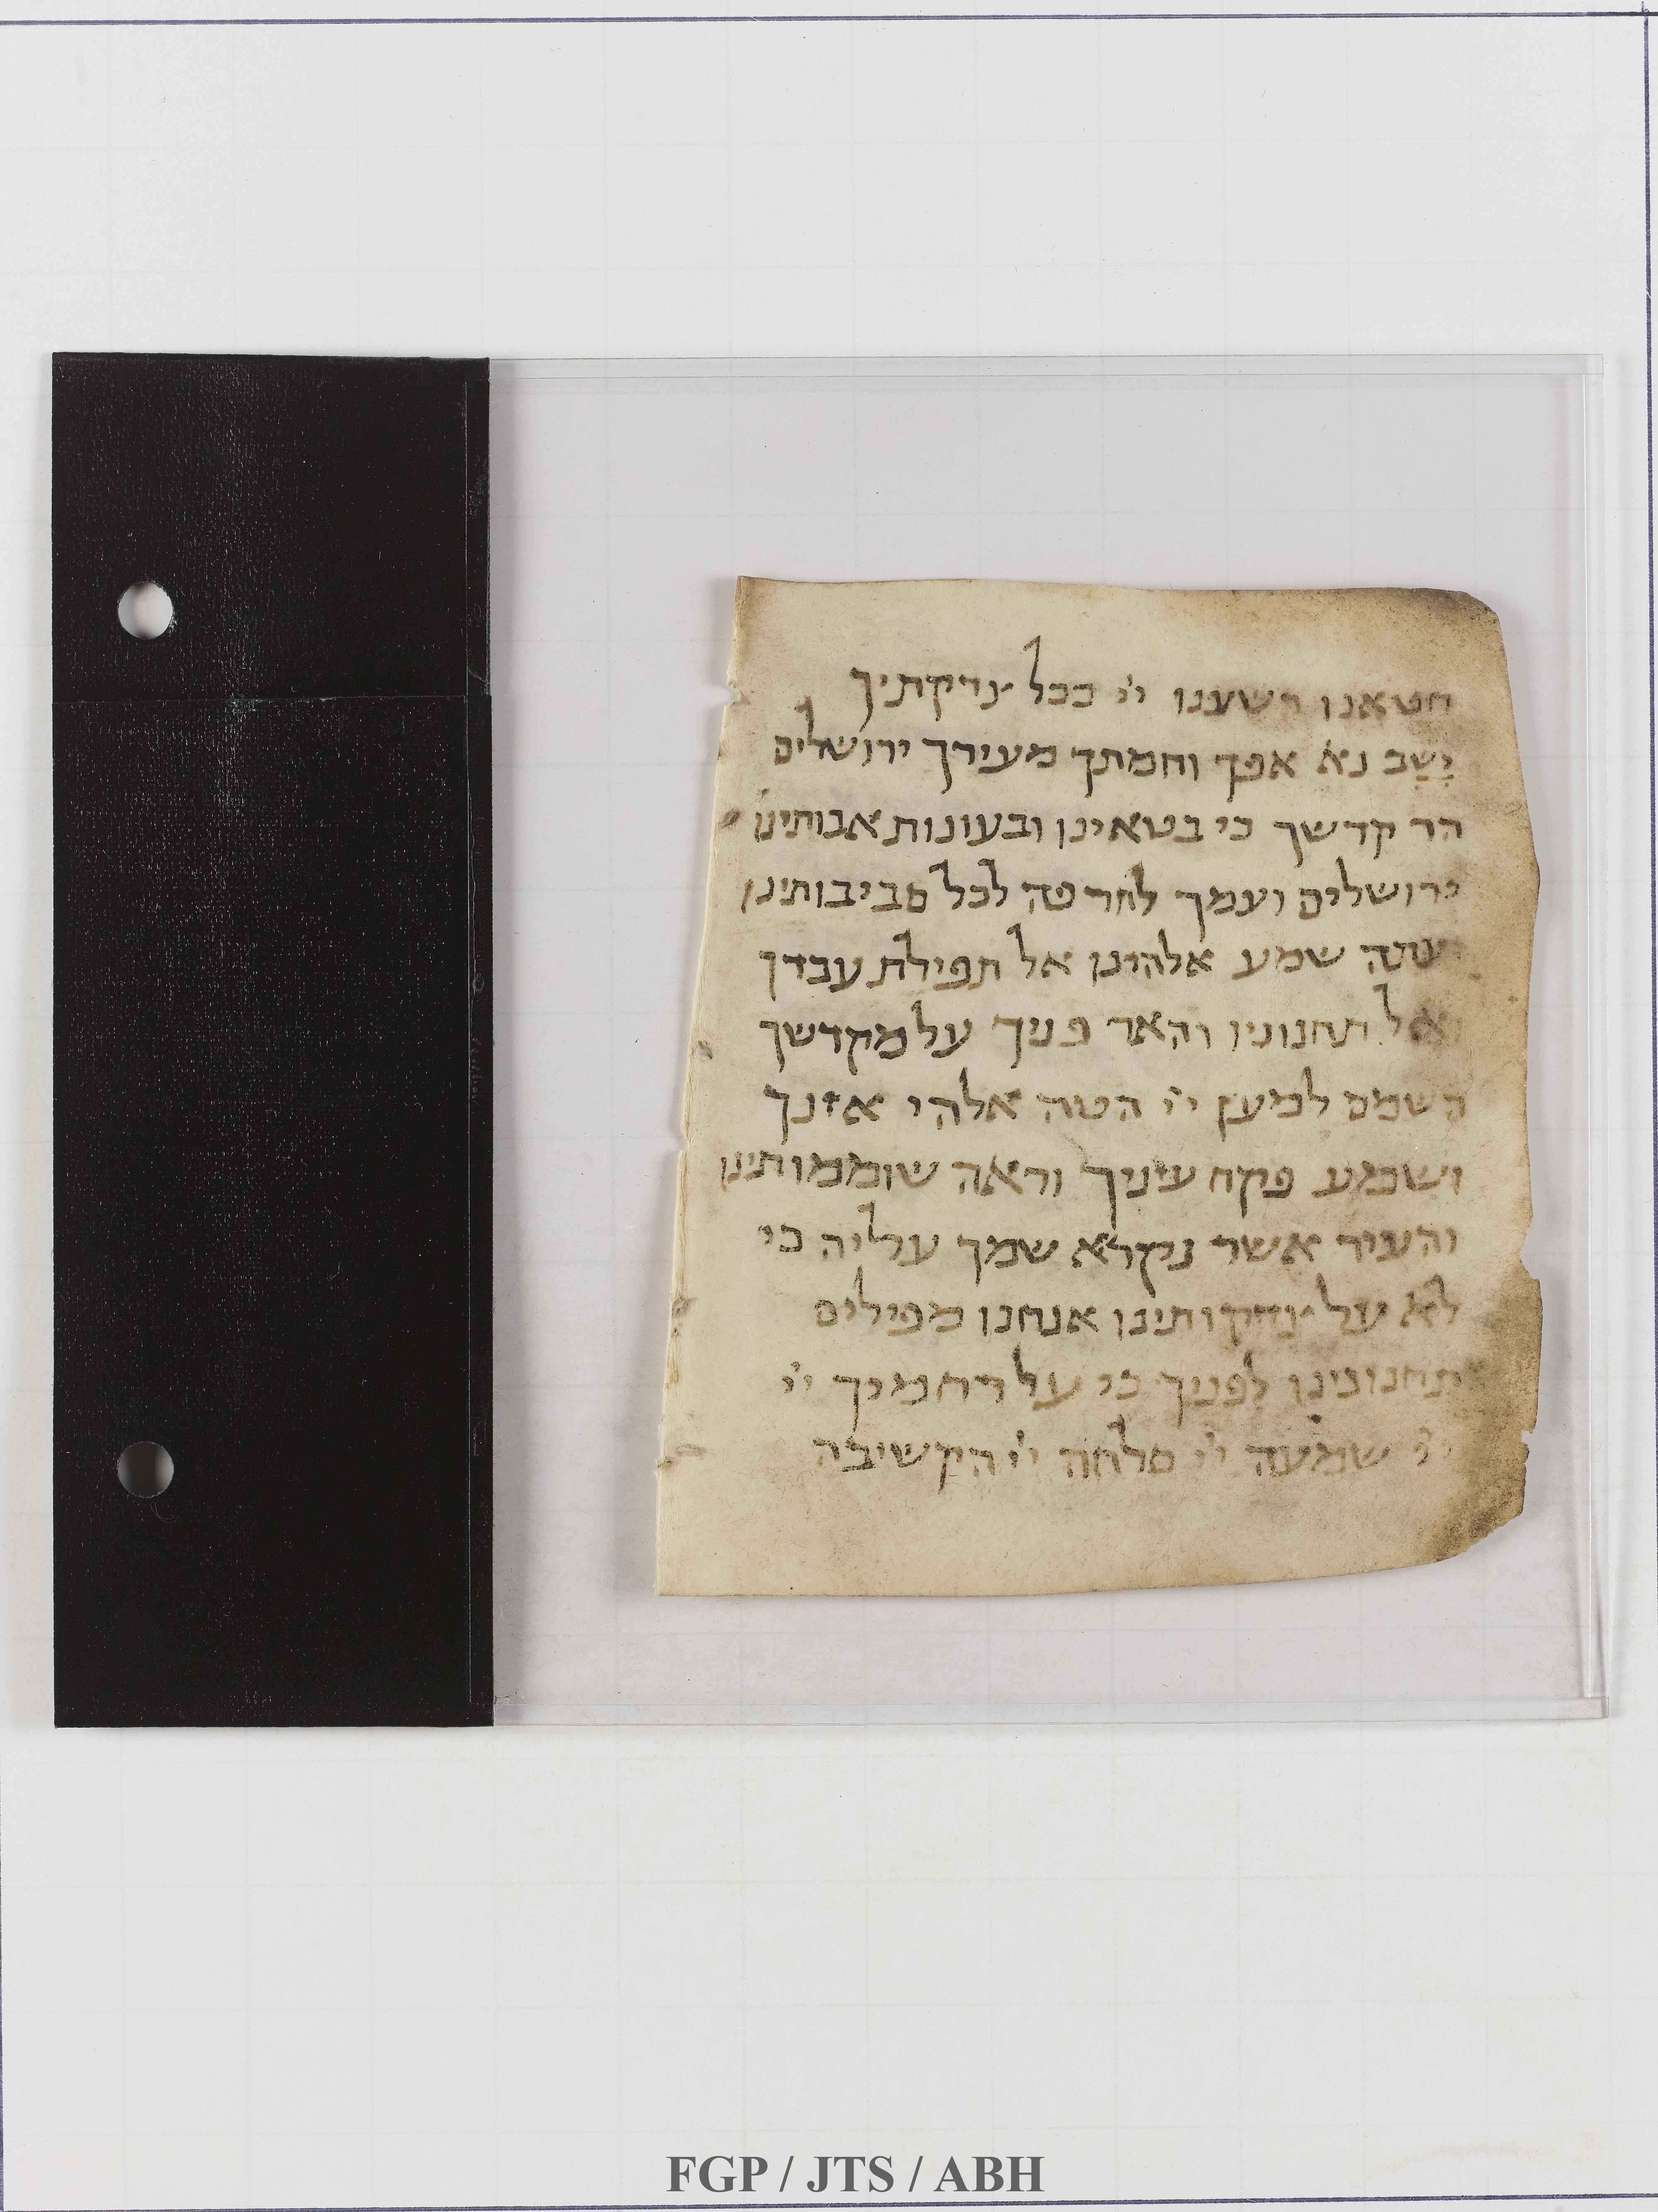 חטאנו רשענו ייי ככל צדקתיך
יָשָב נא אפך וחמתך מעירך ירושלים
הר קדשך כי בטאינו ובעונות אבותינו
ירושלים ועמך לחרפה לכל סביבותינו
ועתה שמע אלהינו אל תפילת עבדך
ואל תחנוניו והאר פניך על מקדשך
השמם למען ייי הטה אלהי אזנך
ושמע פקח עיניך וראה שוממותינו
והעיר אשר נקרא שמך עליה כי
לא על צדקותינו אנחנו מפילים
תחנונינו לפניך כי על רחמיך ייי
ייי שמעה ייי סלחה ייי הקשיבה
FGP / JTS / ABH